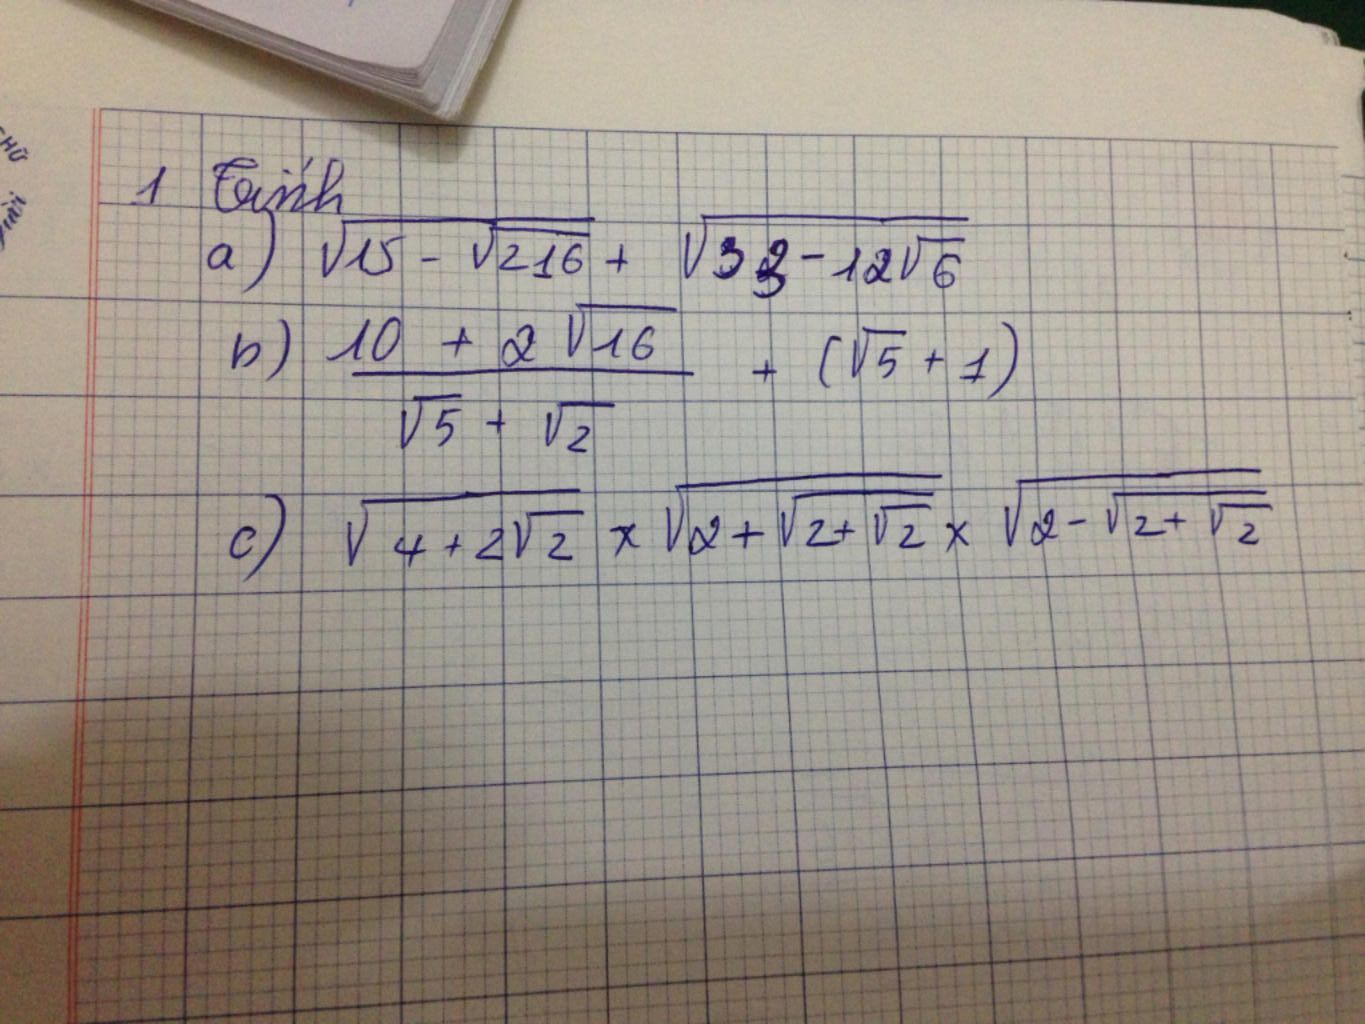 1 Tính
a) √(15 - √216) + √(33 - 12√6)
b) (10 + 2√16)/(√5 + √2) + (√5 + 1)
c) √(4 + 2√2) x √(2 + √(2 + √2)) x √(2 - √(2 + √2))